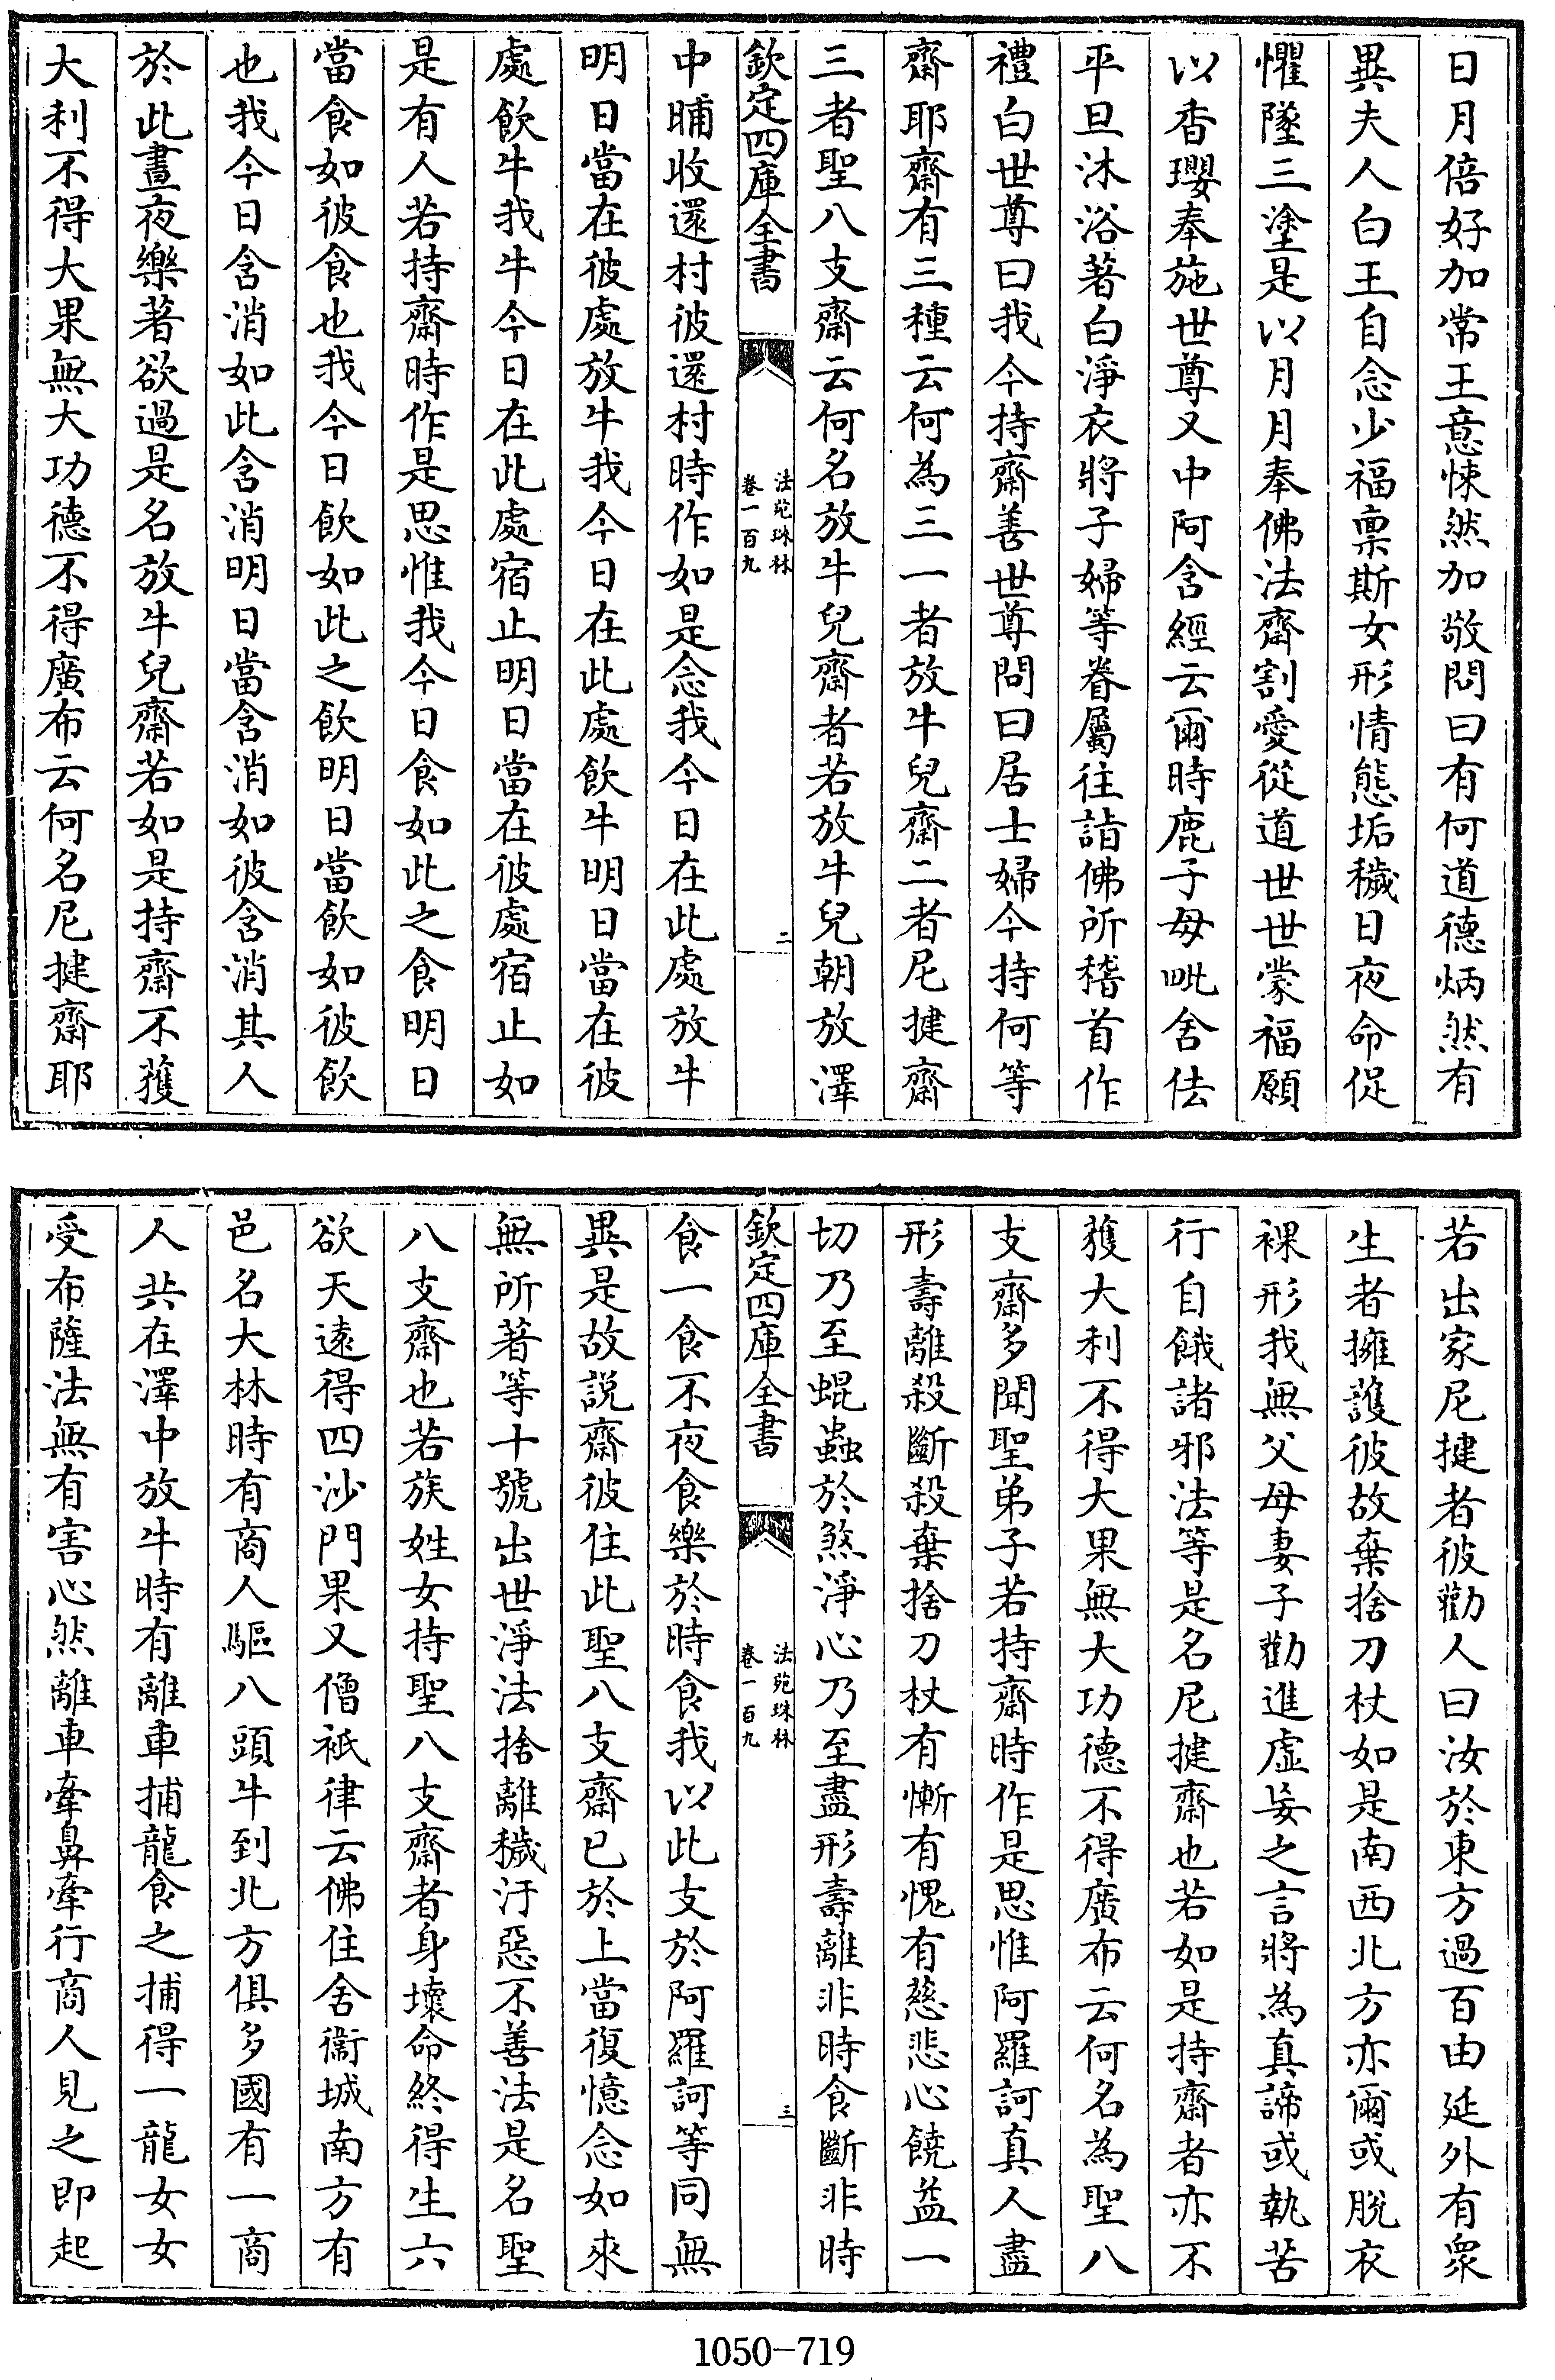 日月倍好加常王意悚然加敬問曰有何道德炳然有
異夫人白王自念少福稟斯女形情態垢穢日夜命促
懼墜三塗是以月月奉佛法齋割愛從道世世蒙福願
以香瓔奉施世尊又中阿含經云爾時鹿子母毗舍佉
平旦沐浴著白淨衣將子婦等眷屬往詣佛所稽首作
禮白世尊曰我今持齋善世尊問曰居士婦今持何等
齋耶齋有三種云何為三一者放牛兒齋二者尼揵齋
三者聖八支齋云何名放牛兒齋者若放牛兒朝放澤
欽定四庫全書
法苑珠林
卷一百九
二
中晡收還村彼還村時作如是念我今日在此處放牛
明日當在彼處放牛我今日在此處飲牛明日當在彼
處飲牛我牛今日在此處宿止明日當在彼處宿止如
是有人若持齋時作是思惟我今日食如此之食明日
當食如彼食也我今日飲如此之飲明日當飲如彼飲
也我今日含消如此含消明日當含消如彼含消其人
於此晝夜樂著欲過是名放牛兒齋若如是持齋不獲
大利不得大果無大功德不得廣布云何名尼揵齋耶
若出家尼揵者彼勸人曰汝於東方過百由延外有眾
生者擁護彼故棄捨刀杖如是南西北方亦爾或脫衣
裸形我無父母妻子勸進虛妄之言將為真諦或執苦
行自餓諸邪法等是名尼揵齋也若如是持齋者亦不
獲大利不得大果無大功德不得廣布云何名為聖八
支齋多聞聖弟子若持齋時作是思惟阿羅訶真人盡
形壽離殺斷殺棄捨刀杖有慚有愧有慈悲心饒益一
切乃至蜫蟲於煞淨心乃至盡形壽離非時食斷非時
欽定四庫全書
法苑珠林
卷一百九
三
食一食不夜食樂於時食我以此支於阿羅訶等同無
異是故說齋彼住此聖八支齋已於上當復憶念如來
無所著等十號出世淨法捨離穢汙惡不善法是名聖
八支齋也若族姓女持聖八支齋者身壞命終得生六
欲天遠得四沙門果又僧祇律云佛住舍衞城南方有
邑名大林時有商人驅八頭牛到北方俱多國有一商
人共在澤中放牛時有離車捕龍食之捕得一龍女女
受布薩法無有害心然離車牽鼻牽行商人見之即起
1050-719